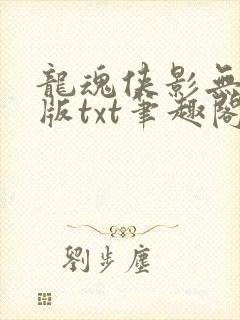 龍魂俠影無
版txt筆趣閣
劉步塵